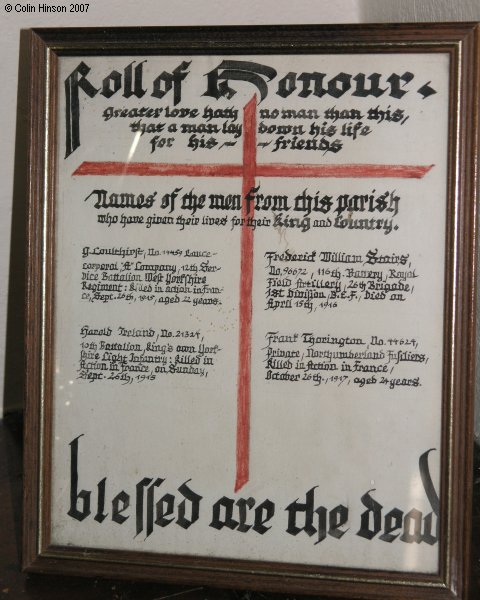 © Colin Hinson 2007
Roll of Honour.
Greater love hath no man than this,
that a man lay down his life
for his ~ ~ friends
Names of the men from this parish
who have given their lives for their King and Country.
G. Coulthirst, No. 11459 Lance-
corporal "A" Company, 12th Ser-
vice Battalion West Yorkshire
Regiment: Killed in action in Fran-
ce, Sept. 26th, 1915, aged 22 years.
Harold Ireland, No. 21324,
10th Battalion, King's own York-
shire Light Infantry: Killed in
Action in France, on Sunday,
Sept. 26th, 1915
Frederick William Stairs,
No. 96672, 116th. Battery, Royal
Field Artillery, 26th Brigade,
1st Division, B.E.F., died on
April 15th, 1916
Frank Thorington, No. 44624,
Private, Northumberland Fusiliers,
Killed in Action in France,
October 26th., 1917, aged 24 years.
blessed are the dead